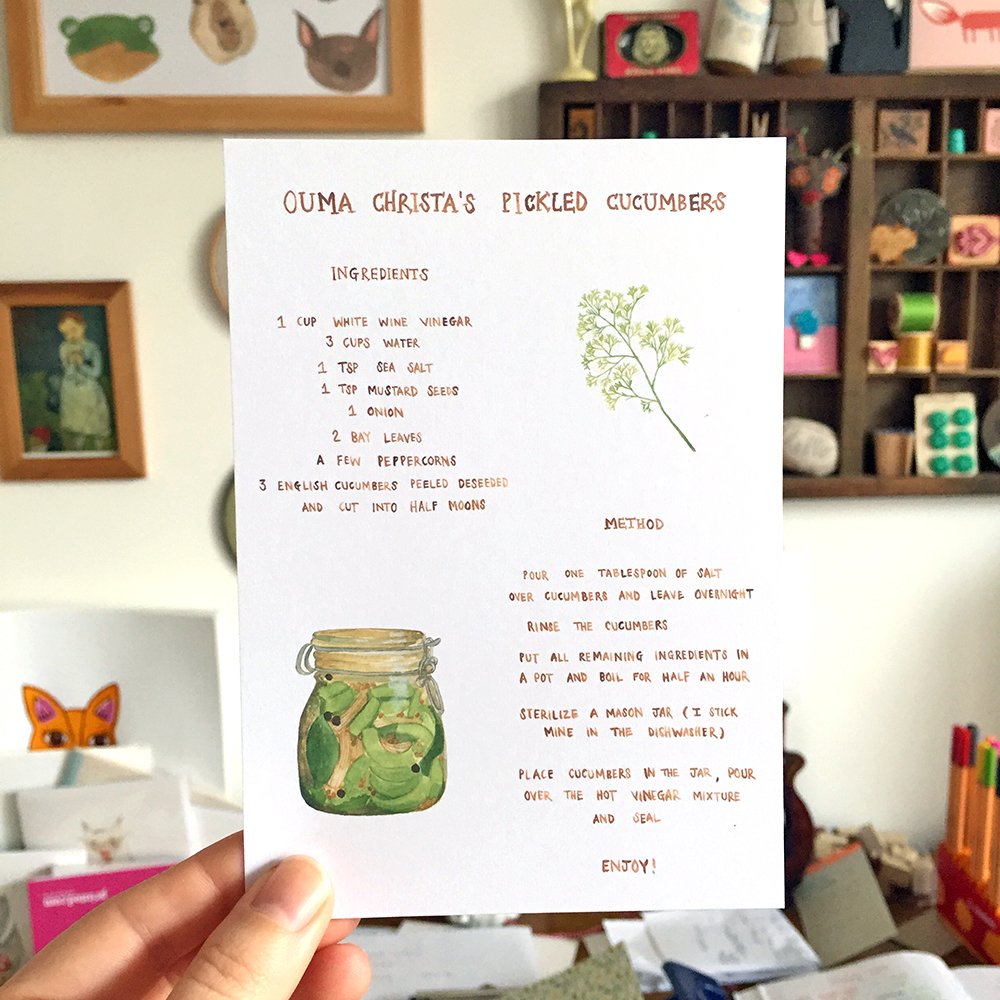 OUMA CHRISTA'S PICKLED CUCUMBERS
INGREDIENTS
1 CUP WHITE WINE VINEGAR
3 CUPS WATER
1 TSP SEA SALT
1 TSP MUSTARD SEEDS
1 ONION
2 BAY LEAVES
A FEW PEPPERCORNS
3 ENGLISH CUCUMBERS PEELED DESEEDED
AND CUT INTO HALF MOONS
METHOD
POUR ONE TABLESPOON OF SALT
OVER CUCUMBERS AND LEAVE OVERNIGHT
RINSE THE CUCUMBERS
PUT ALL REMAINING INGREDIENTS IN
A POT AND BOIL FOR HALF AN HOUR
STERILIZE A MASON JAR (I STICK
MINE IN THE DISHWASHER)
PLACE CUCUMBERS IN THE JAR, POUR
OVER THE HOT VINEGAR MIXTURE
AND SEAL
ENJOY!